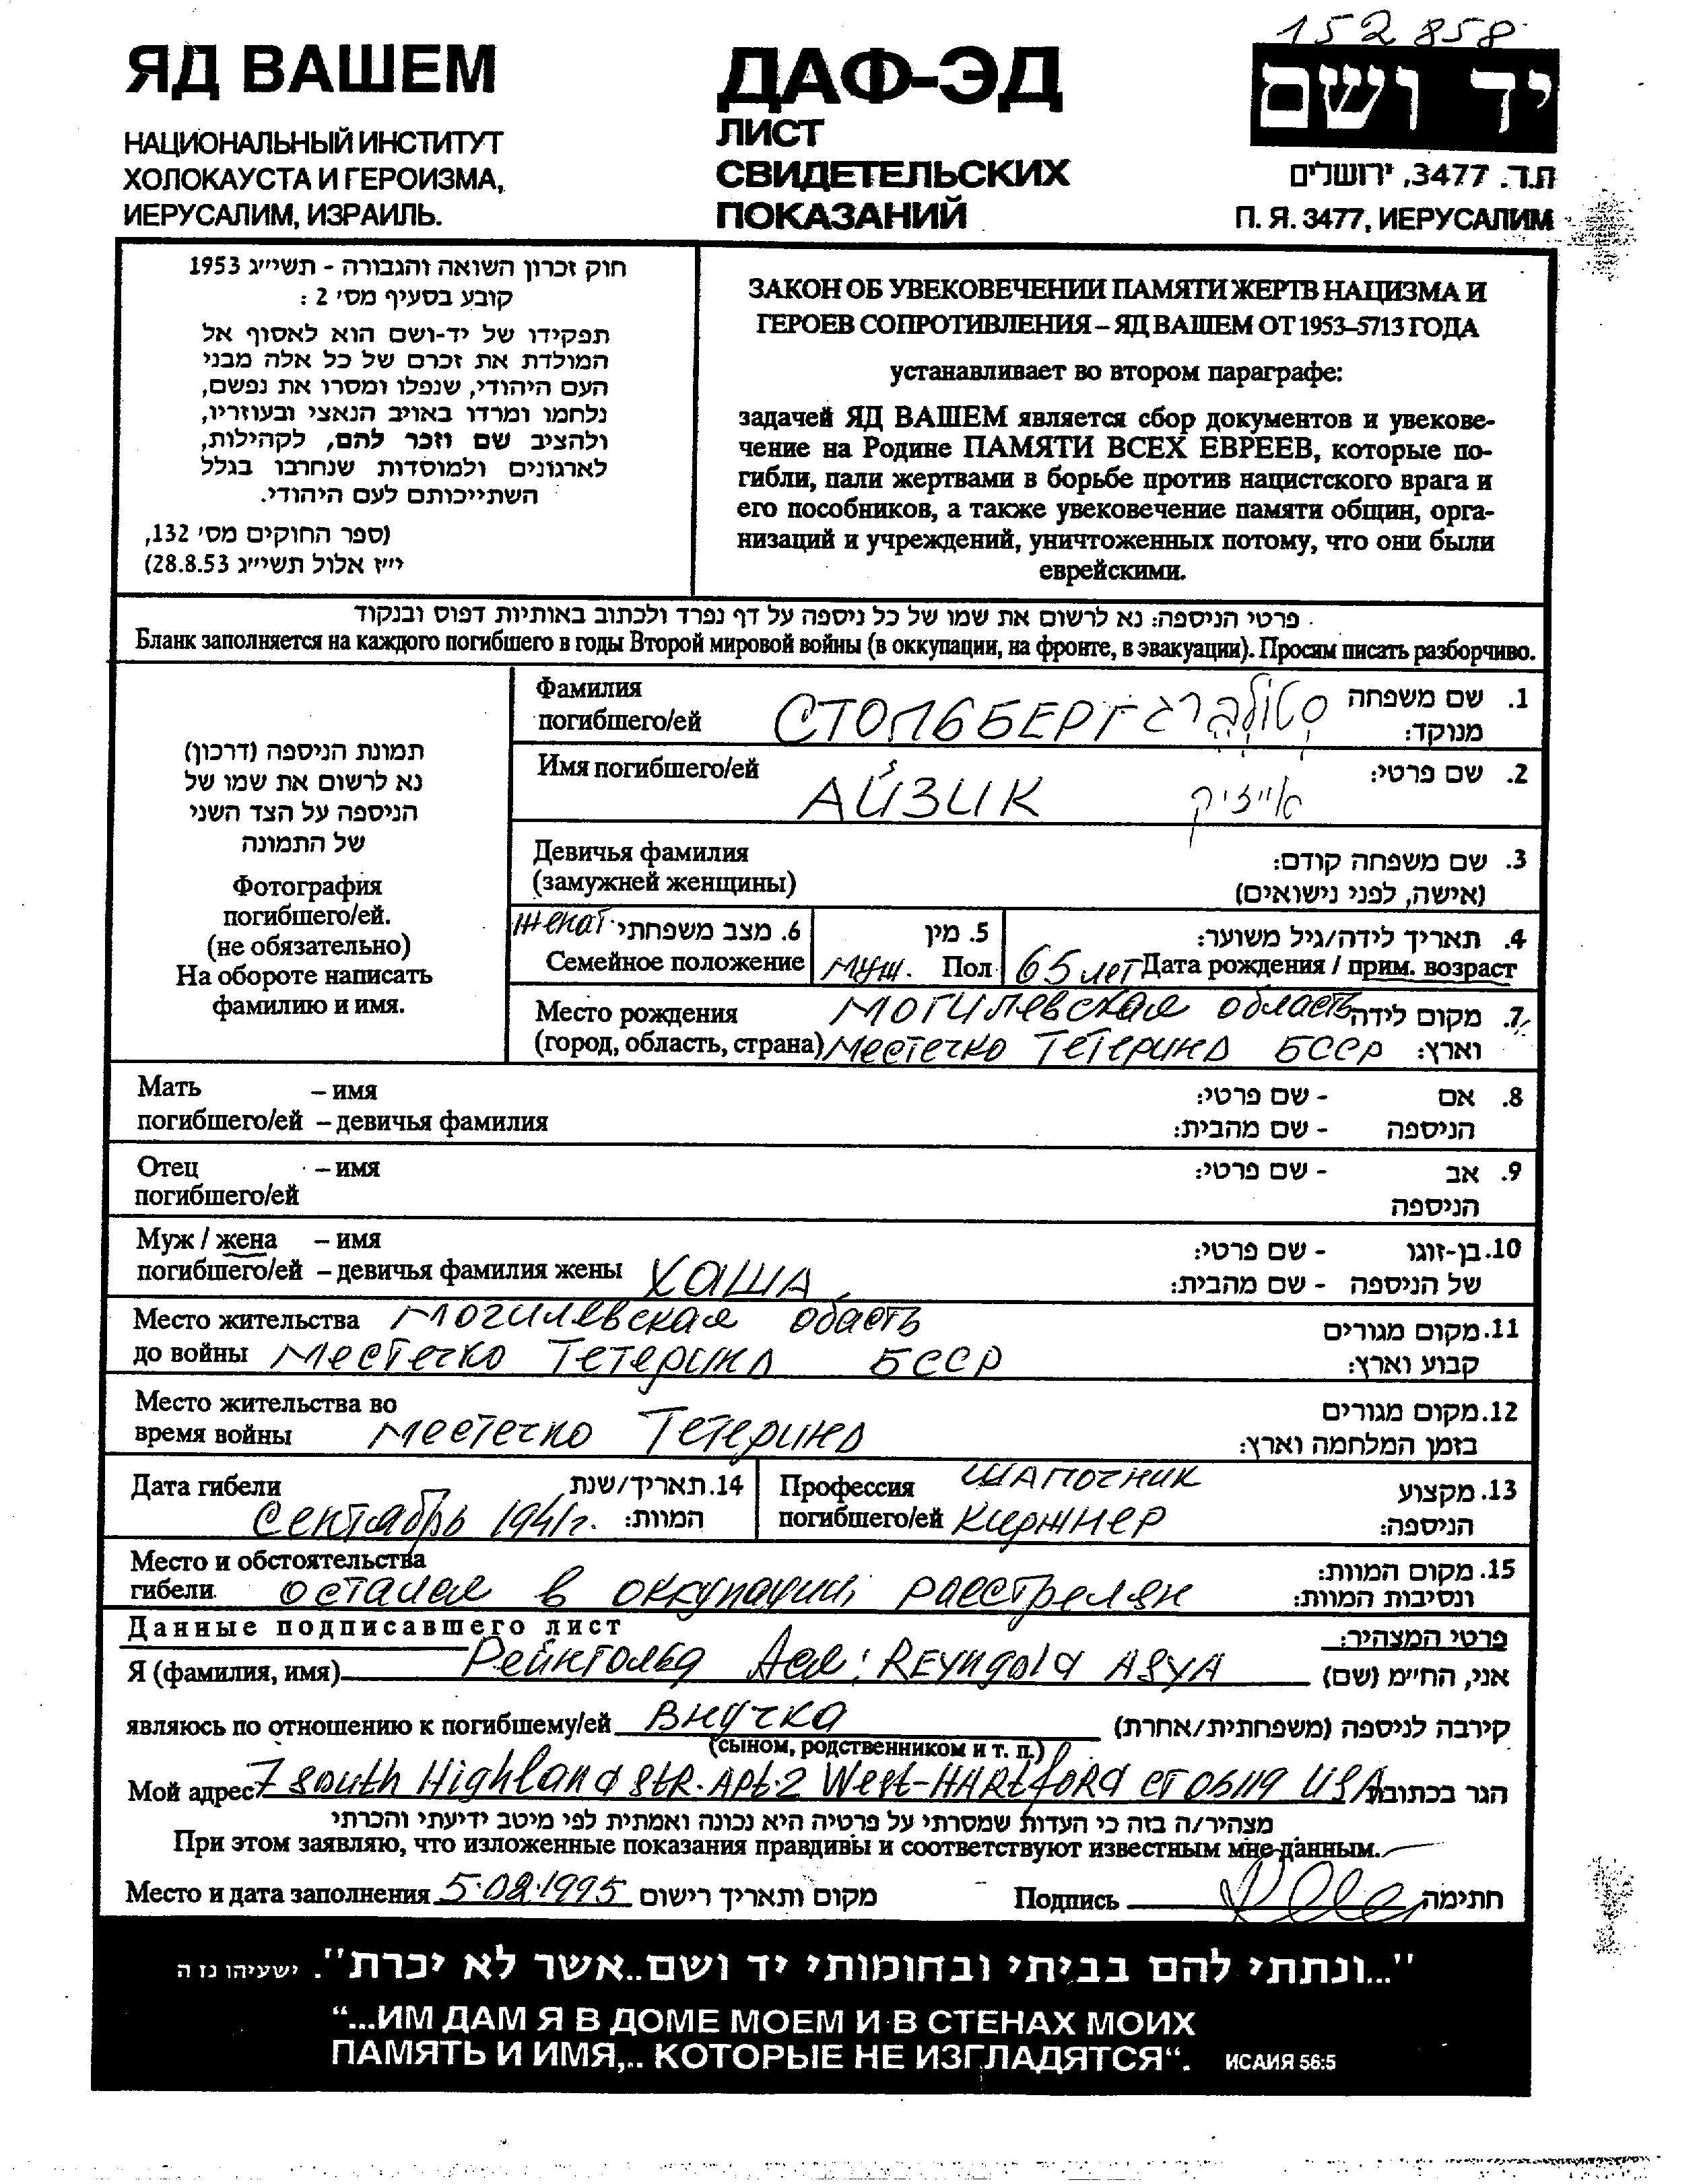 152858
ЯД ВАШЕМ
НАЦИОНАЛЬНЫЙ ИНСТИТУТ
ХОЛОКАУСТА И ГЕРОИЗМА,
ИЕРУСАЛИМ, ИЗРАИЛЬ.
ДАФ-ЭД
ЛИСТ
СВИДЕТЕЛЬСКИХ
ПОКАЗАНИЙ
יד ושם
ת.ד. 3477, ירושלים
П. Я. 3477, ИЕРУСАЛИМ
חוק זכרון השואה והגבורה - תשי״ג 1953
קובע בסעיף מס׳ 2 :
תפקידו של יד-ושם הוא לאסוף אל
המולדת את זכרם של כל אלה מבני
העם היהודי, שנפלו ומסרו את נפשם,
נלחמו ומרדו באויב הנאצי ובעוזריו,
ולהציב שם וזכר להם, לקהילות,
לארגונים ולמוסדות שנחרבו בגלל
השתייכותם לעם היהודי.
(ספר החוקים מס׳ 132,
י״ז אלול תשי״ג 28.8.53)
ЗАКОН ОБ УВЕКОВЕЧЕНИИ ПАМЯТИ ЖЕРТВ НАЦИЗМА И
ГЕРОЕВ СОПРОТИВЛЕНИЯ – ЯД ВАШЕМ ОТ 1953–5713 ГОДА
устанавливает во втором параграфе:
задачей ЯД ВАШЕМ является сбор документов и увекове-
чение на Родине ПАМЯТИ ВСЕХ ЕВРЕЕВ, которые по-
гибли, пали жертвами в борьбе против нацистского врага и
его пособников, а также увековечение памяти общин, орга-
низаций и учреждений, уничтоженных потому, что они были
еврейскими.
פרטי הניספה: נא לרשום את שמו של כל ניספה על דף נפרד ולכתוב באותיות דפוס ובנקוד
Бланк заполняется на каждого погибшего в годы Второй мировой войны (в оккупации, на фронте, в эвакуации). Просим писать разборчиво.
תמונת הניספה (דרכון)
נא לרשום את שמו של
הניספה על הצד השני
של התמונה
Фотография
погибшего/ей.
(не обязательно)
На обороте написать
фамилию и имя.
Фамилия
погибшего/ей СТОЛЬБЕРГ סטולברג
1. שם משפחה
מנוקד:
Имя погибшего/ей АЙЗИК אייזיק 2. שם פרטי:
Девичья фамилия
(замужней женщины)
3. שם משפחה קודם:
(אישה, לפני נישואים)
женат 6. מצב משפחתי
Семейное положение
5. מין
муж. Пол
4. תאריך לידה/גיל משוער:
65 лет Дата рождения / прим. возраст
Место рождения
(город, область, страна)
Могилевская область
местечко Тетерино БССР
7. מקום לידה
וארץ:
Мать – имя
погибшего/ей – девичья фамилия
8. אם - שם פרטי:
הניספה - שם מהבית:
Отец – имя
погибшего/ей
9. אב - שם פרטי:
הניספה
Муж / жена – имя
погибшего/ей – девичья фамилия жены ХАША
10. בן-זוגו - שם פרטי:
של הניספה - שם מהבית:
Место жительства Могилевская обасть
до войны местечко Тетерино БССР
11. מקום מגורים
קבוע וארץ:
Место жительства во
время войны местечко Тетерино
12. מקום מגורים
בזמן המלחמה וארץ:
Дата гибели 14. תאריך/שנת
Сентябрь 1941г. המוות:
Профессия шапочник
погибшего/ей киржнер
13. מקצוע
הניספה:
Место и обстоятельства
гибели остался в оккупации, расстрелян
15. מקום המוות:
ונסיבות המוות:
Данные подписавшего лист
פרטי המצהיר:
Я (фамилия, имя) Рейнгольд Ася; REYngold ASYA אני, הח״מ (שם)
являюсь по отношению к погибшему/ей внучка קירבה לניספה (משפחתית/אחרת)
(сыном, родственником и т. п.)
Мой адрес 7 South Highland StR. Apt. 2 West-HARtfoRd CT 06119 USA הגר בכתובת
מצהיר/ה בזה כי העדות שמסרתי על פרטיה היא נכונה ואמתית לפי מיטב ידיעתי והכרתי
При этом заявляю, что изложенные показания правдивы и соответствуют известным мне данным.
Место и дата заполнения 5.02.1995 מקום ותאריך רישום Подпись חתימה
"...ונתתי להם בביתי ובחומותי יד ושם..אשר לא יכרת". ישעיהו נז ה
“...ИМ ДАМ Я В ДОМЕ МОЕМ И В СТЕНАХ МОИХ
ПАМЯТЬ И ИМЯ,.. КОТОРЫЕ НЕ ИЗГЛАДЯТСЯ“. ИСАИЯ 56:5